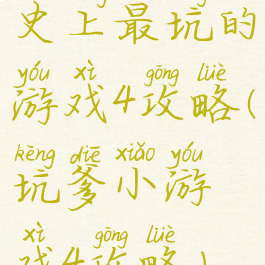 史上最坑的
yóu xì gōng lüè
游戏4攻略(
kēng diē xiǎo yóu
坑爹小游
xì gōng lüè
戏4攻略)